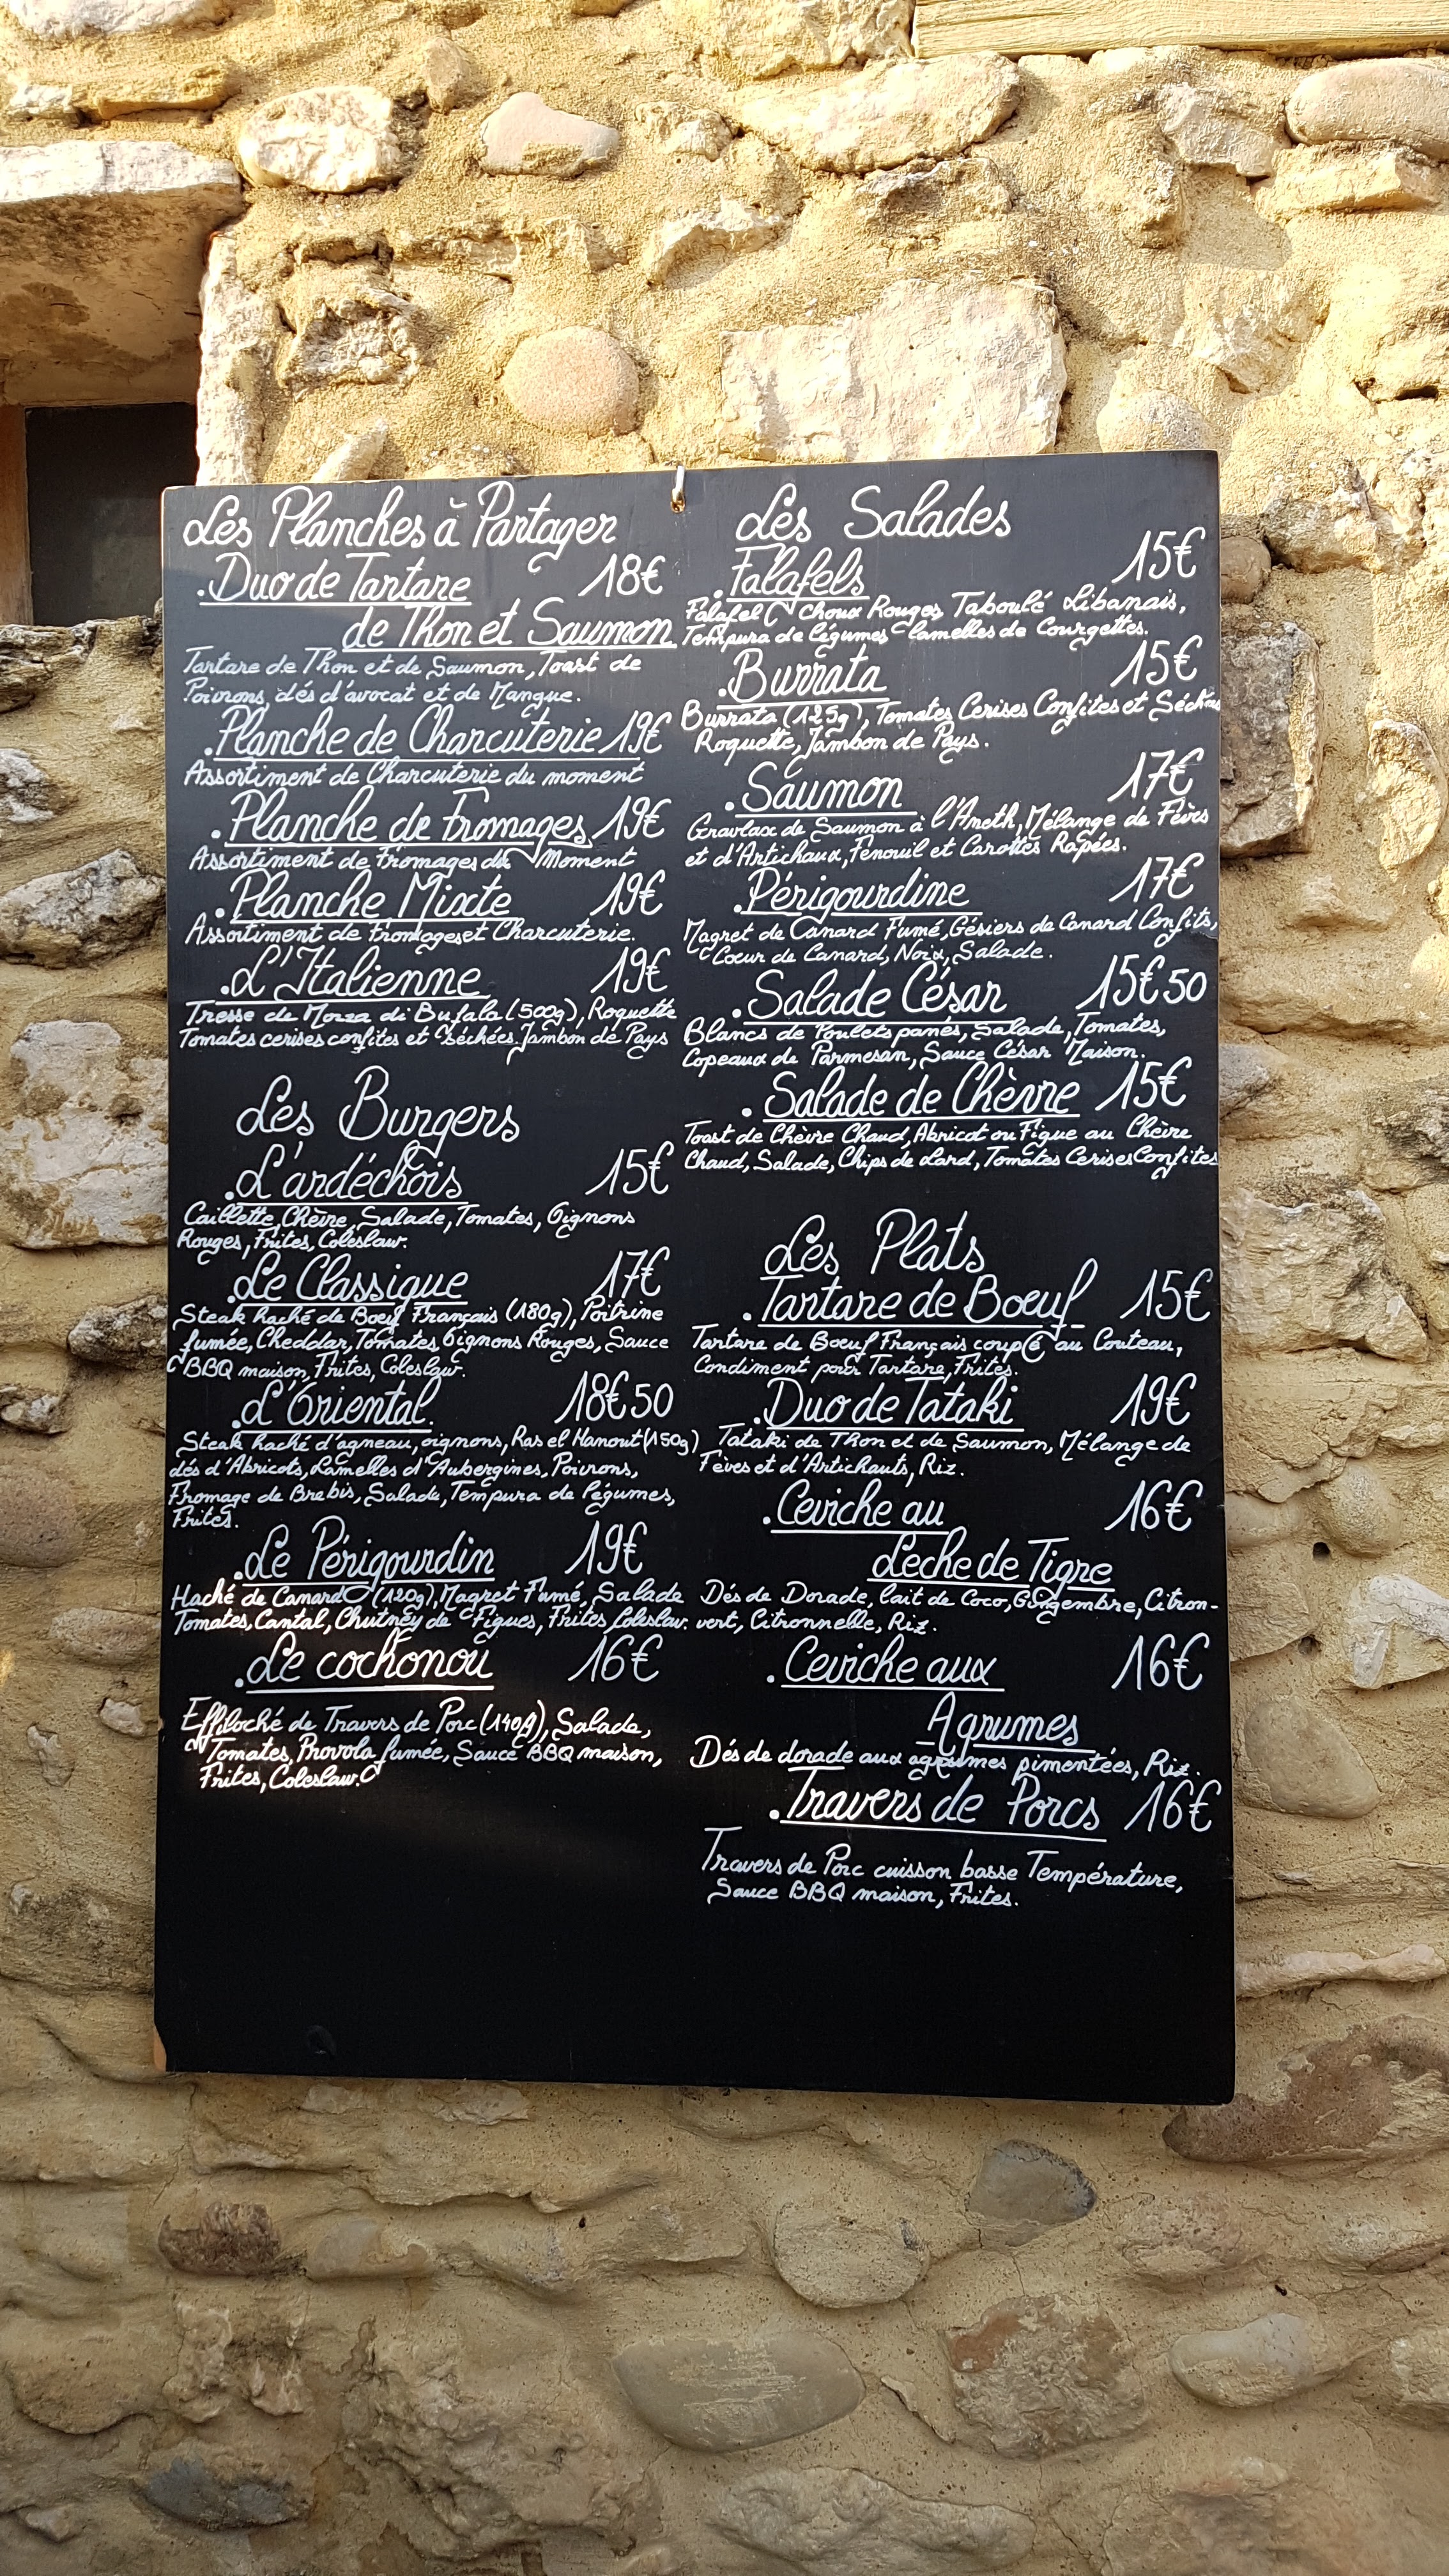 Les Planches à Partager
.Duo de Tartare 18€
de Thon et Saumon
Tartare de Thon et de Saumon, Toast de
Poivrons, dés d'avocat et de Mangue.
.Planche de Charcuterie 19€
Assortiment de Charcuterie du moment
.Planche de Fromages 19€
Assortiment de Fromages du Moment
.Planche Mixte 19€
Assortiment de Fromages et Charcuterie.
.L'Italienne 19€
Tresse de Mozza di Bufala (500g), Roquette
Tomates cerises confites et Séchées. Jambon de Pays
Les Burgers
.L'ardéchois 15€
Caillette, Chèvre, Salade, Tomates, Oignons
Rouges, Frites, Coleslaw.
.Le Classique 17€
Steak haché de Boeuf Français (180g), Poitrine
fumée, Cheddar, Tomates, Oignons Rouges, Sauce
BBQ maison, Frites, Coleslaw.
.L'Oriental. 18€50
Steak haché d'agneau, oignons, Ras el Hanout (150g)
dés d'Abricots, Lamelles d'Aubergines, Poivrons,
Fromage de Brebis, Salade, Tempura de légumes,
Frites.
.Le Périgourdin 19€
Haché de Canard (120g), Magret Fumé, Salade
Tomates, Cantal, Chutney de Figues, Frites Coleslaw.
.Le cochonou 16€
Effiloché de Travers de Porc (140g), Salade,
Tomates, Provola fumée, Sauce BBQ maison,
Frites, Coleslaw.
Les Salades
.Falafels 15€
Falafel Choux Rouges, Taboulé Libanais,
Tempura de légumes lamelles de Courgettes.
.Burrata 15€
Burrata (125g), Tomates Cerises Confites et Séchées
Roquette, Jambon de Pays.
.Saumon 17€
Gravlax de Saumon à l'Aneth, Mélange de Fèves
et d'Artichaux, Fenouil et Carottes Rapées.
.Périgourdine 17€
Magret de Canard Fumé, Gésiers de Canard Confits,
Coeur de Canard, Noix, Salade.
.Salade César 15€50
Blancs de Poulets panés, Salade, Tomates,
Copeaux de Parmesan, Sauce César Maison.
.Salade de Chèvre 15€
Toast de Chèvre Chaud, Abricot ou Figue au Chèvre
Chaud, Salade, Chips de Lard, Tomates Cerises Confites
Les Plats
.Tartare de Boeuf 15€
Tartare de Boeuf Français coupé au Couteau,
Condiment pour Tartare, Frites.
.Duo de Tataki 19€
Tataki de Thon et de Saumon, Mélange de
Fèves et d'Artichauts, Riz.
.Ceviche au 16€
Leche de Tigre
Dés de Dorade, lait de Coco, Gingembre, Citron-
vert, Citronnelle, Riz.
.Ceviche aux 16€
Agrumes
Dés de dorade aux agrumes pimentées, Riz.
.Travers de Porcs 16€
Travers de Porc cuisson basse Température,
Sauce BBQ maison, Frites.